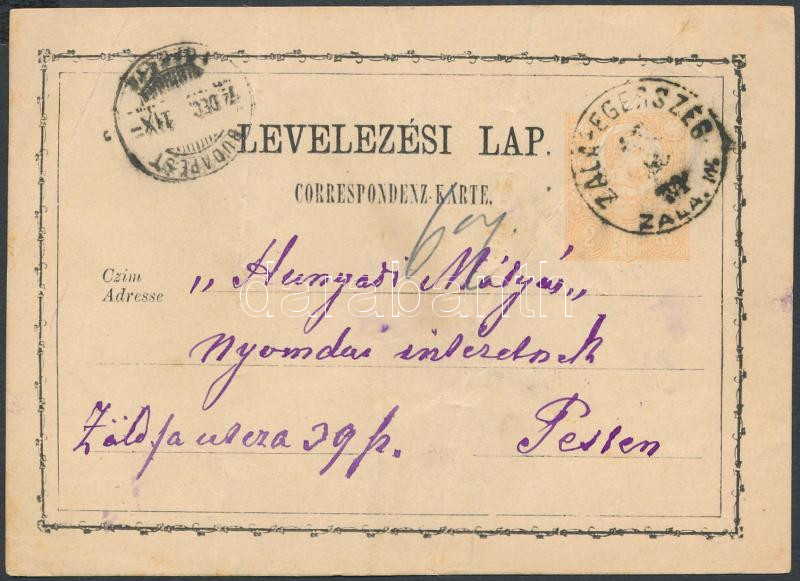 BUDAPEST
74 DEC.
ZALA-EGERSZEG
ZALA. M.
LEVELEZÉSI LAP.
CORRESPONDENZ-KARTE.
2
Czim
Adresse
„Hunyadi Mátyás„
nyomdai intézetnek
Zöldfa utcza 39 sz.
Pesten
darabanth